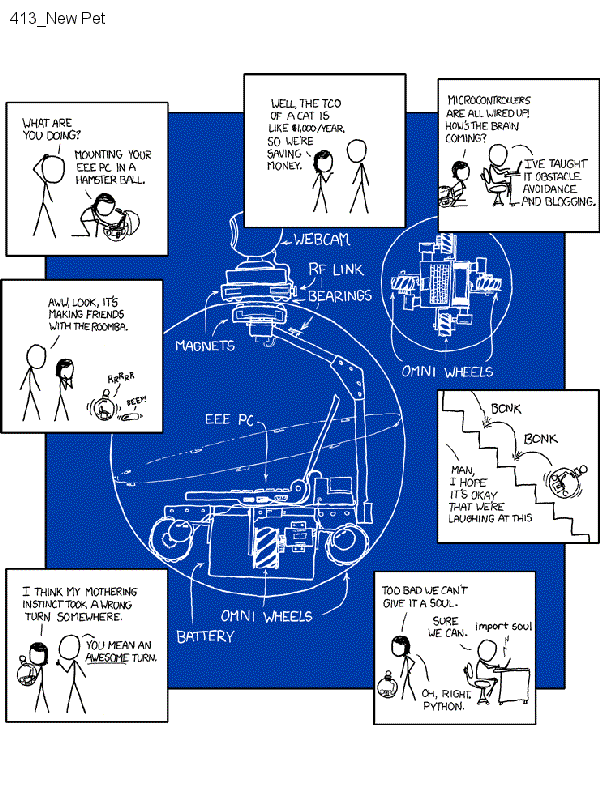 413_New Pet
WHAT ARE
YOU DOING?
MOUNTING YOUR
EEE PC IN A
HAMSTER BALL.
WELL, THE TCO
OF A CAT IS
LIKE $1,000/YEAR,
SO WE'RE
SAVING
MONEY.
MICROCONTROLLERS
ARE ALL WIRED UP!
HOW'S THE BRAIN
COMING?
I'VE TAUGHT
IT OBSTACLE
AVOIDANCE
AND BLOGGING.
WEBCAM
RF LINK
BEARINGS
MAGNETS
OMNI WHEELS
EEE PC
OMNI WHEELS
BATTERY
AWW, LOOK, IT'S
MAKING FRIENDS
WITH THE ROOMBA.
RRRRR
BEEP!
BONK
BONK
MAN,
I HOPE
IT'S OKAY
THAT WE'RE
LAUGHING AT THIS
I THINK MY MOTHERING
INSTINCT TOOK A WRONG
TURN SOMEWHERE.
YOU MEAN AN
AWESOME TURN.
TOO BAD WE CAN'T
GIVE IT A SOUL.
SURE
WE CAN.
import soul
OH, RIGHT,
PYTHON.